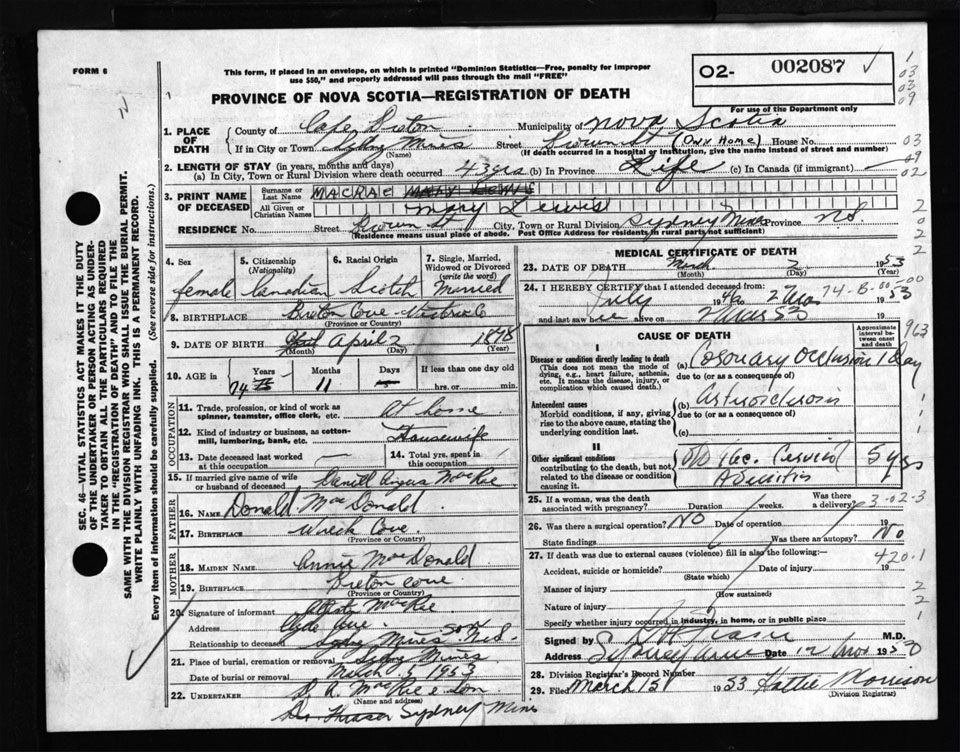 FORM 6
This form, if placed in an envelope, on which is printed "Dominion Statistics—Free, penalty for improper
use $50," and properly addressed will pass through the mail "FREE"
02- 002087 ✓
1
03
03
09
PROVINCE OF NOVA SCOTIA—REGISTRATION OF DEATH
For use of the Department only
1. PLACE OF DEATH { County of Cape Breton Municipality of Nova Scotia
If in City or Town Sydney Mines (Name) Street (Our Home) House No.
(If death occurred in a hospital or institution, give the name instead of street and number)
03
09
02
2. LENGTH OF STAY (in years, months and days)
(a) In City, Town or Rural Division where death occurred 43 yrs (b) In Province Life (c) In Canada (if immigrant) —
3. PRINT NAME OF DECEASED { Surname or Last Name MACRAE MARY LEWIS
All Given or Christian Names Mary Lewis
RESIDENCE No. Street City, Town or Rural Division Sydney Mines Province N.S.
(Residence means usual place of abode. Post Office Address for residents in rural parts not sufficient)
2
0
2
2
SEC. 46—VITAL STATISTICS ACT MAKES IT THE DUTY
OF THE UNDERTAKER OR PERSON ACTING AS UNDER-
TAKER TO OBTAIN ALL THE PARTICULARS REQUIRED
IN THE "REGISTRATION OF DEATH" AND TO FILE THE
SAME WITH THE DIVISION REGISTRAR WHO SHALL ISSUE THE BURIAL PERMIT.
WRITE PLAINLY WITH UNFADING INK. THIS IS A PERMANENT RECORD.
Every item of information should be carefully supplied. (See reverse side for instructions.)
4. Sex 5. Citizenship (Nationality) 6. Racial Origin 7. Single, Married, Widowed or Divorced (write the word)
female Canadian Scotch Married
8. BIRTHPLACE Breton Cove - Victoria Co
(Province or Country)
9. DATE OF BIRTH April 2 1878
(Month) (Day) (Year)
10. AGE in { Years Months Days If less than one day old
74 75 11 — hrs. or min.
OCCUPATION
11. Trade, profession, or kind of work as
spinner, teamster, office clerk, etc. At home
12. Kind of industry or business, as cotton-
mill, lumbering, bank, etc. Housewife
13. Date deceased last worked at this occupation —
14. Total yrs. spent in this occupation
15. If married give name of wife
or husband of deceased Daniel Angus MacRae
FATHER
16. Name Donald MacDonald
17. Birthplace Wreck Cove
(Province or Country)
MOTHER
18. Maiden Name Annie MacDonald
19. Birthplace Breton Cove
(Province or Country)
20. Signature of informant MacRae
Address Clyde Ave.
Sydney Mines N.S.
Relationship to deceased Son
21. Place of burial, cremation or removal Sydney Mines
Date of burial or removal March 5 1953
22. Undertaker D. R. MacRae & Son
(Name and address)
Dr. Fraser Sydney Mines
MEDICAL CERTIFICATE OF DEATH
23. DATE OF DEATH March 2 1953
(Month) (Day) (Year)
24. I HEREBY CERTIFY that I attended deceased from: 74-B-00-00
July 1949 2 Mar 1953
and last saw her alive on 2 Mar 53 19
CAUSE OF DEATH
Approximate interval between onset and death
963
I
Disease or condition directly leading to death
(This does not mean the mode of
dying, e.g., heart failure, asthenia,
etc. It means the disease, injury, or
complication which caused death.)
(a) Coronary Occlusion 1 Day
due to (or as a consequence of)
Antecedent causes
Morbid conditions, if any, giving
rise to the above cause, stating the
underlying condition last.
(b) Arteriosclerosis
due to (or as a consequence of)
(c)
II
Other significant conditions
contributing to the death, but not
related to the disease or condition
causing it.
Cervical 5 yrs
Adenitis
25. If a woman, was the death associated with pregnancy? Duration weeks. Was there a delivery?
3-02-3
26. Was there a surgical operation? No Date of operation 19
State findings Was there an autopsy? No
27. If death was due to external causes (violence) fill in also the following:—
420.1
Accident, suicide or homicide? Date of injury 19
(State which)
Manner of injury
(How sustained)
2
Nature of injury
2
Specify whether injury occurred in industry, in home, or in public place
1
Signed by Fraser M.D.
Address Sydney Mines Date 12 Mar 1953
28. Division Registrar's Record Number
29. Filed March 15 1953 Hattie Morrison
(Division Registrar)